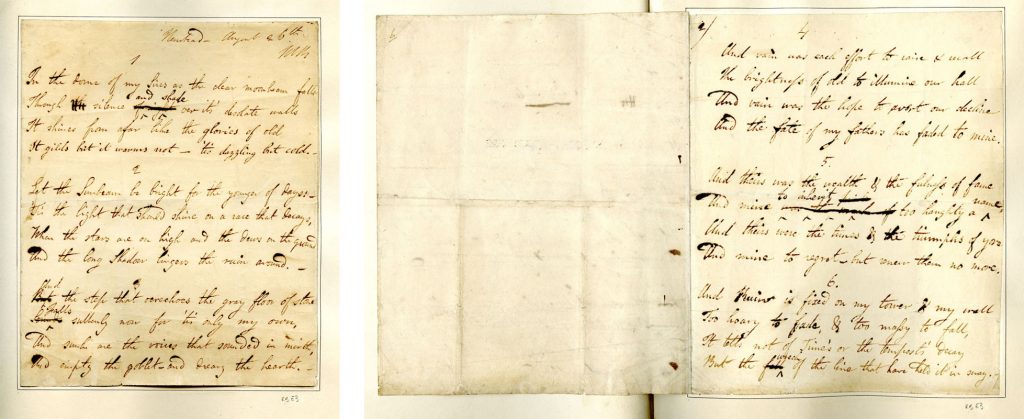 Newstead - August 26th
1
In the dome of my Sires as the clear moonbeam falls
Though silence and shade o'er its desolate walls
It shines from afar like the glories of old
It gilds but it warms not - 'tis dazzling but cold. -
2
Let the Sunbeam be bright for the younger of days -
'Tis the light that should shine on a race that decays,
When the stars are on high and the dews on the ground
And the long Shadow lingers the ruin around. -
3
And the step that oerechoes the gray floor of stone
Falls sullenly now for 'tis only my own,
And sunk are the voices that sounded in mirth,
And empty the goblet - and dreary the hearth. -
4
And vain was each effort to raise & recall
The brightness of old to illumine our hall
And vain was the hope to avert our decline
And the fate of my fathers has faded to mine.
5.
And theirs was the wealth & the fulness of fame
And mine to inherit too haughty a name,
And theirs were the times & the triumphs of yore
And mine to regret - but renew them no more.
6.
And Ruin is fixed on my tower & my wall
Too hoary to fade, & too massy to fall,
It tells not of Time's or the tempest's decay
But the wreck of the line that have held it in sway. -